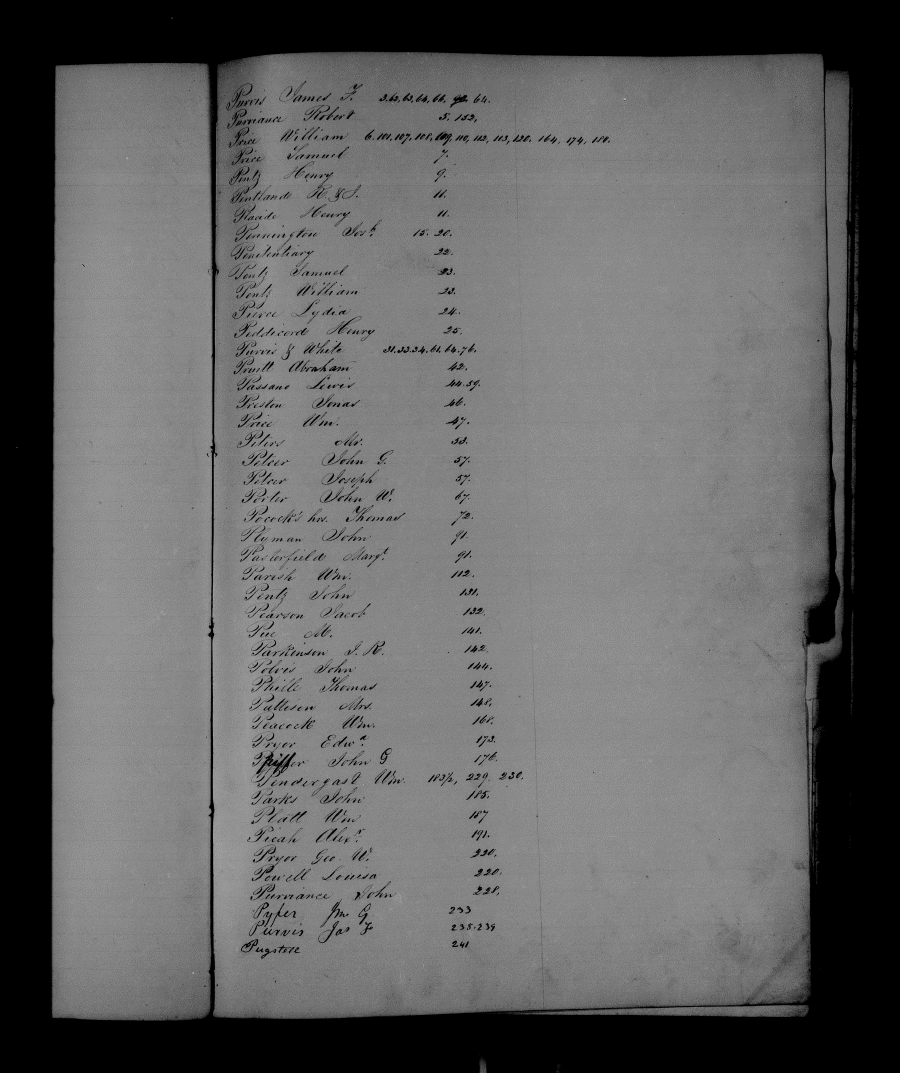 Purvis James F. 3,62,63,64,66, 92. 64.
Purviance Robert 5. 152,
Price William 6. 101, 107, 108, 109, 110, 112, 113, 120. 164. 174, 180.
Price Samuel 7.
Pentz Henry 9.
Pentland R. & S. 11.
Placide Henry 11.
Pennington Josh. 15. 20.
Penitentiary 22.
Pentz Samuel 23.
Pentz William 23.
Pierce Lydia 24.
Peddicord Henry 25.
Purvis & White 31.33.34.61.64.76.
Pruett Abraham 42.
Passano Lewis 44.59.
Preston Jonas 46.
Price Wm. 47.
Peters Mr. 53.
Potver John G. 57.
Potver Joseph 57.
Porter John W. 67.
Pocock's hrs. Thomas 72.
Plyman John 91.
Pasterfield Margt. 91.
Parish Wm. 112.
Pentz John 131.
Pearson Jacob 132.
Pue M. 141.
Parkinson J. R. 142.
Polvis John 144.
Phille Thomas 147.
Patteson Mrs. 148.
Peacock Wm. 168.
Pryor Edwd. 173.
John G 176.
Pendergast Wm. 183½, 229, 230.
Parks John 185.
Platt Wm 187
Picah Alexr. 191.
Pryor Geo. W. 220.
Powell Louisa 220.
Purviance John 228,
Pyfer Jno G 233
Purvis Jas F 238.239
Pugstell 241